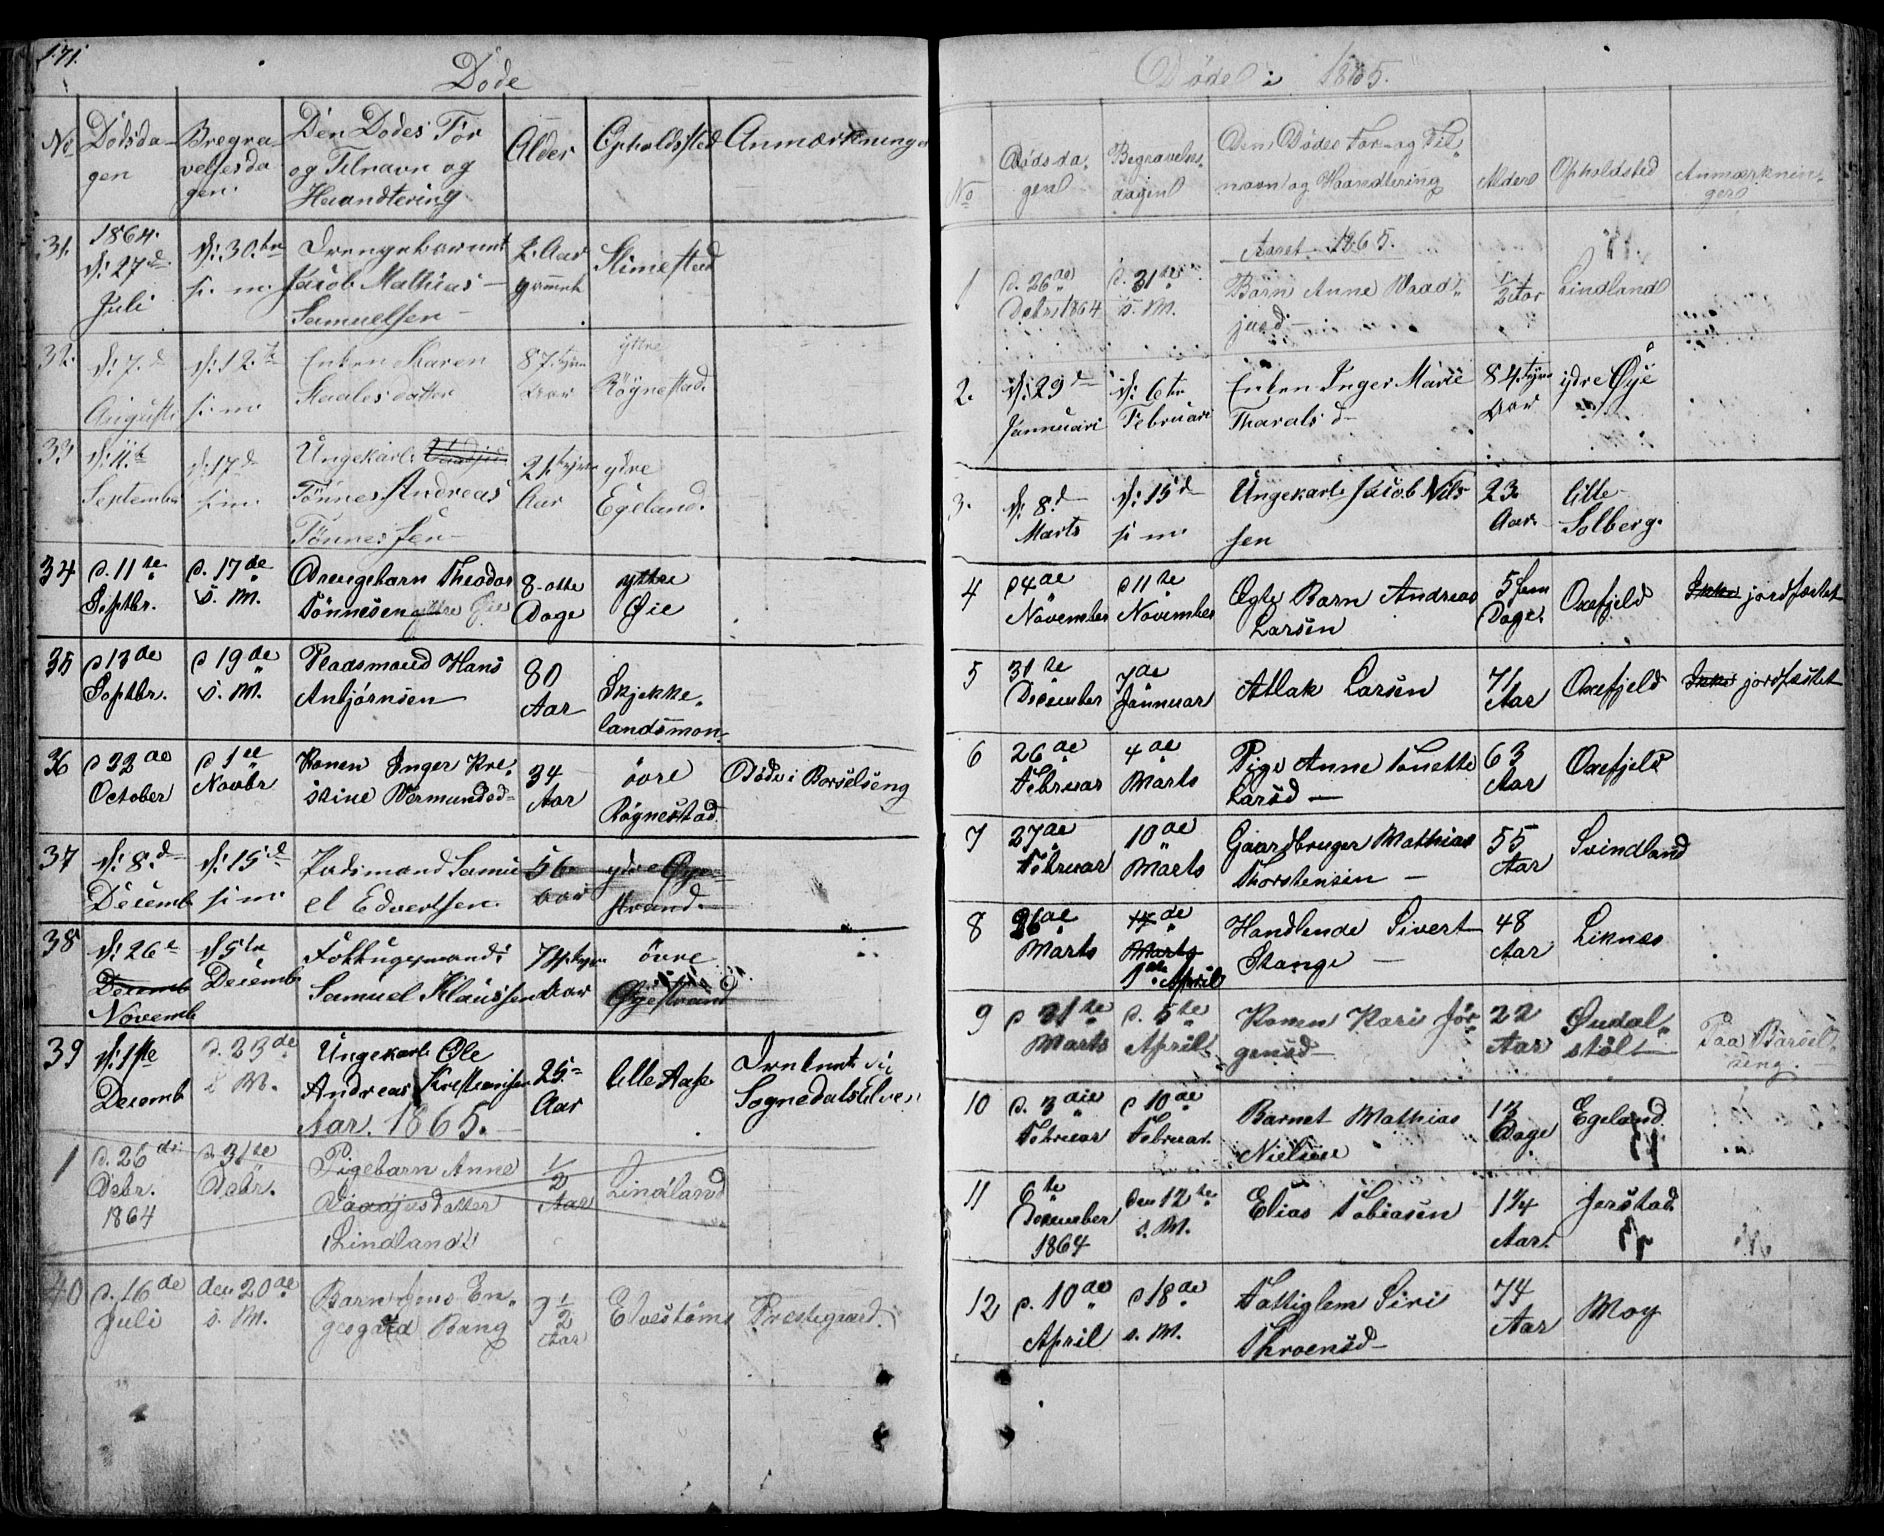 171.
Døde
No
Dødsda-
gen
Bregra-
velsesda
gen.
Den Dødes For
og Tilnavn og
Haandtering
Alder
Opholdsted
Anmærkninger
31.
1864.
d: 27d
Juli
d: 30.te
s. m.
Drengebarnet
Jacob Mathias
Samuelsen
2. Aar
Slimestad
32.
d: 7.d
Augusti
d: 12.te
s. m.
Enken Karen
Staalesdatter
87. syv
Aar
ytre
Røgnestad.
33
d: 11.te
September
d: 17d
s. m.
Ungekarl:
Tønnes Andreas
Tønnes sen
21. tyve
Aar
ydre
Egeland.
34
d. 11te
Septbr.
d. 17de
s. M.
Drengebarn Theodor
Tønnesen ytre Øie
8-otte
Dage
yttre
Øie
35
d 13de
Septbr.
d 19de
s. M.
Pladsmand Hans
Anbjørnsen
80
Aar
Skjekke-
landsmon-
36
d 22de
October
d 1te
Novbr
Konen Inger Kri-
stine Vermundsd-
34
Aar
övre
Røgnestad.
Døde i Barselseng
37
d: 8.d
Decemb
d: 15d
s: m.
Pladsmand Samu
el Edvertsen.
56
Aar
ydre Øye-
strand.
38
d: 26e
Decemb
Novemb
d 5te
Decemb
Folkugesmand:
Samuel Klaussen
74. fyre
Aar
övre
Øyestrand
39
d: 1ste
Decemb
d. 23de
s M.
Ungekarl: Ole
Andreas Kristiansen
25
Aar
lille Aase
Druknet i
Sognedalselven
Aar. 1865.
1
d. 26de
Debr.
1864
d. 31te
Debr.
Pigebarn Anne
Vaadjusdatter
Lindland
1/2
Aar
Lindland
40
d. 16de
Juli
den 20de
s. M.
Barn Jens En-
gesgaard Bang
3 1/2
Aar
Elvestøms
Prestegaard.
Døde i 1865.
No
Dødsda-
gen
Begravelses-
dagen
Den Dødes For- og Til-
navn og Haandtering
Alder
Opholdsted
Anmærknin-
ger
Aaret 1865.
1
d. 26de
Debr 1864
d. 31te
s. M.
Barn Anne Vaad-
jusd
1/2 Aar
Lindland
2.
d: 29d
Jannuari
d: 6te
Februari
Enken Inger Marie
Tharals d-
84. fyre
Aar
ydre Øye
3.
d: 8.d
Marts
d: 15d
s: m:
Ungekarl: Jacob Nils
sen
23
Aar.
lille
Solberg.
4
d 4de
November
d 11te
November
Ægte Barn Andreas
Larsen
5 fem
Dage
Oxefjeld
Ikke jordfæstet
5
31te
December
7de
Jannuar
Atlak Larsen
71
Aar
Oxefjeld
Ikke jordfæstet
6
26de
Februar
4de
Marts
Pige Anne Tonette
Larsd —
63
Aar
Oxefjeld
7
27de
Februar
10de
Marts
Gaardbruger Mathias
Thorstensen —
55
Aar
Svindland
8
26de
Marts
14de
Marts
1ste April
Handlende Sivert
Stange —
48
Aar
Liknes
9
d 21te
Marts
d. 5te
April
Konen Kari Jør-
gensd
22
Aar
Øudal-
stöl
Paa Barsel-
seng.
10
d. 3die
Februar
d 10de
Februar
Barnet Mathias
Nielsen
13
Dage
Egeland
11
6te
December
1864
den 12te
s. M.
Elias Tobiasen
1 1/4
Aar.
Jerstad
12
d. 10de
April
d 18de
s. M.
Fattiglem Siri
Throensd-
74
Aar
Moy